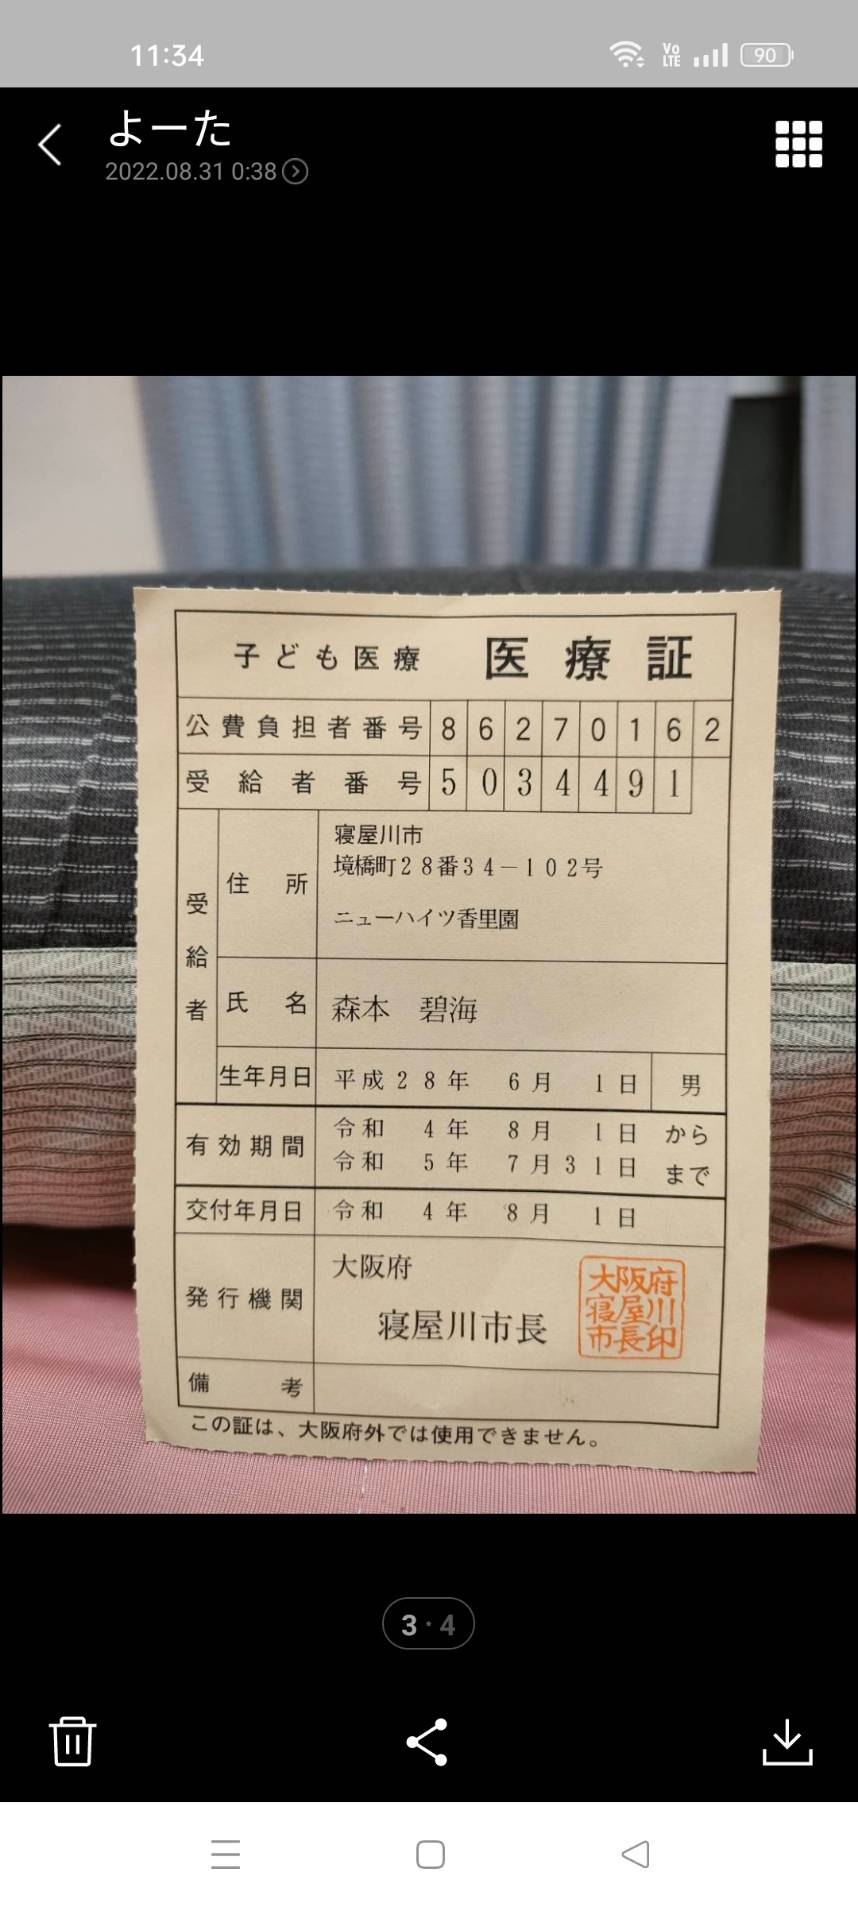 11:34
Vo LTE
90
よーた
2022.08.31 0:38
子ども医療 医療証
公費負担者番号 86270162
受給者番号 5034491
受給者
住所
寝屋川市
境橋町28番34-102号
ニューハイツ香里園
氏名 森本 碧海
生年月日 平成28年 6月 1日 男
有効期間
令和 4年 8月 1日 から
令和 5年 7月31日 まで
交付年月日 令和 4年 8月 1日
発行機関
大阪府
寝屋川市長
大阪府
寝屋川
市長印
備考
この証は、大阪府外では使用できません。
3・4